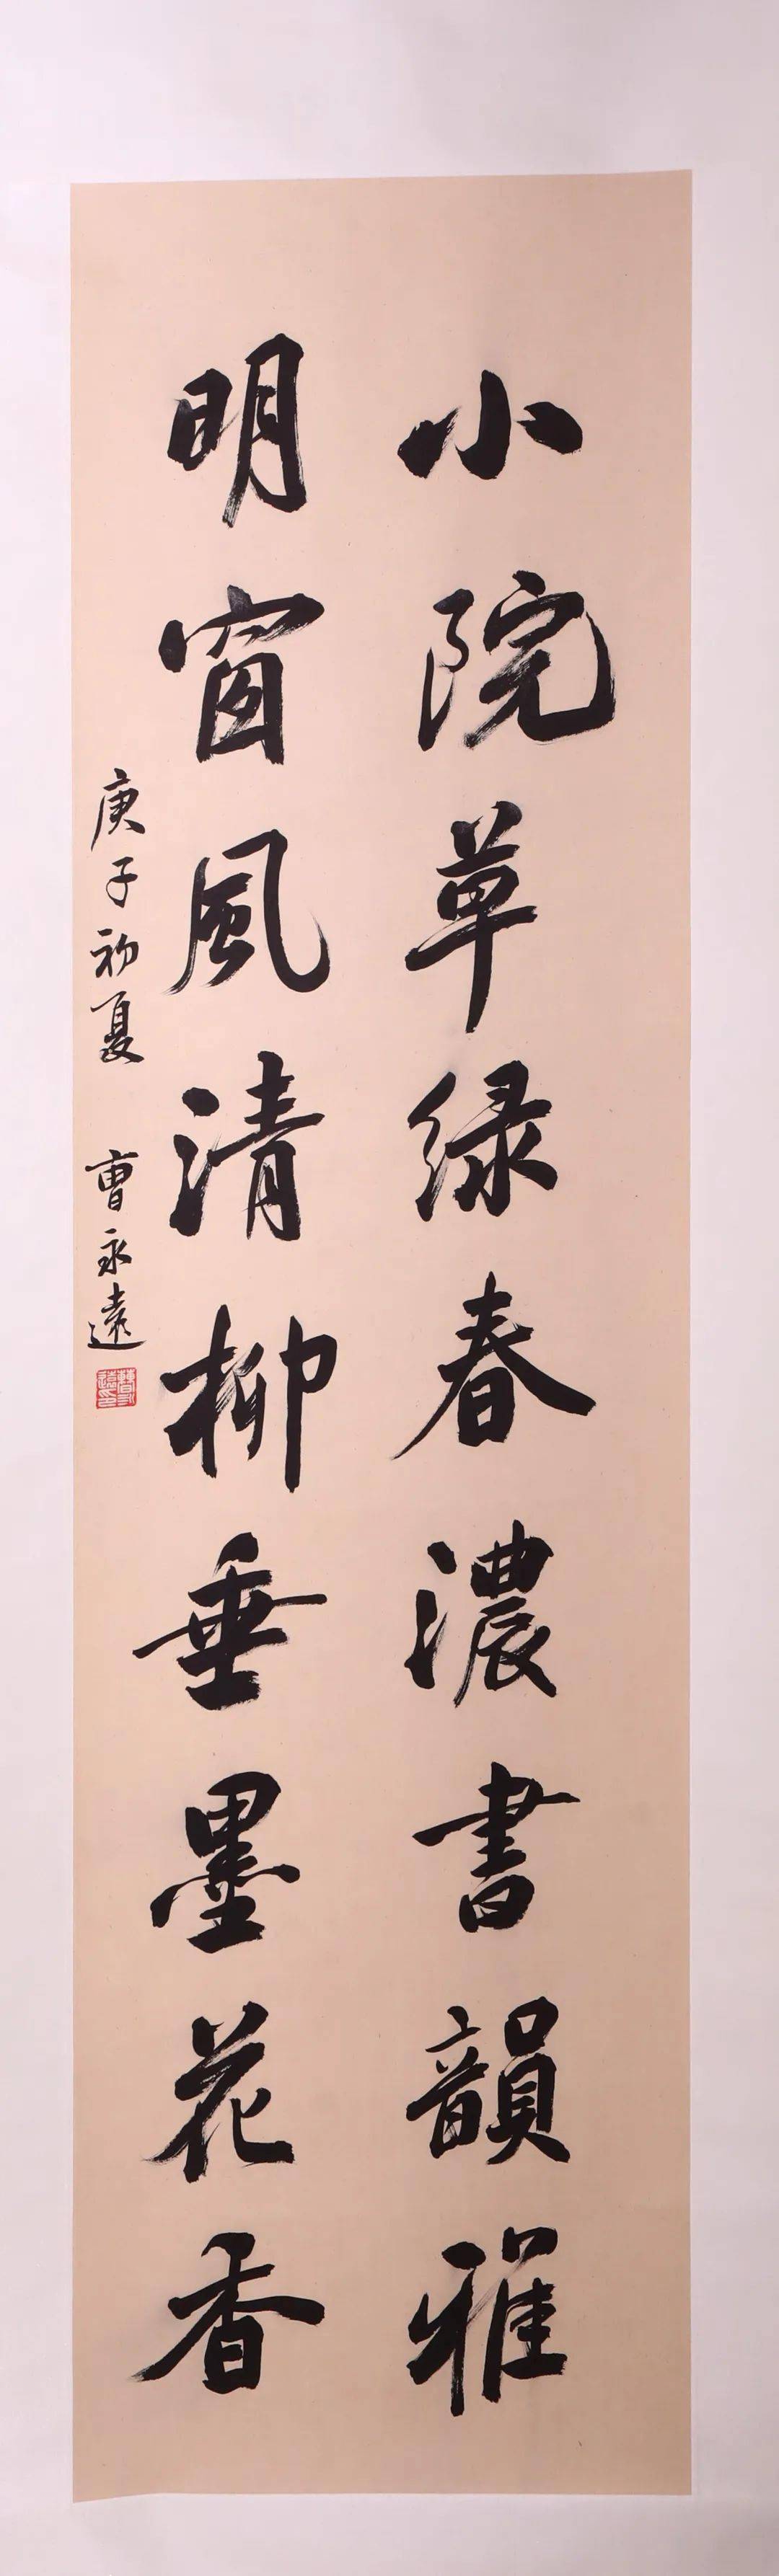 小院草緑春濃書韻雅
明窗風清柳垂墨花香
庚子初夏 曹永遠